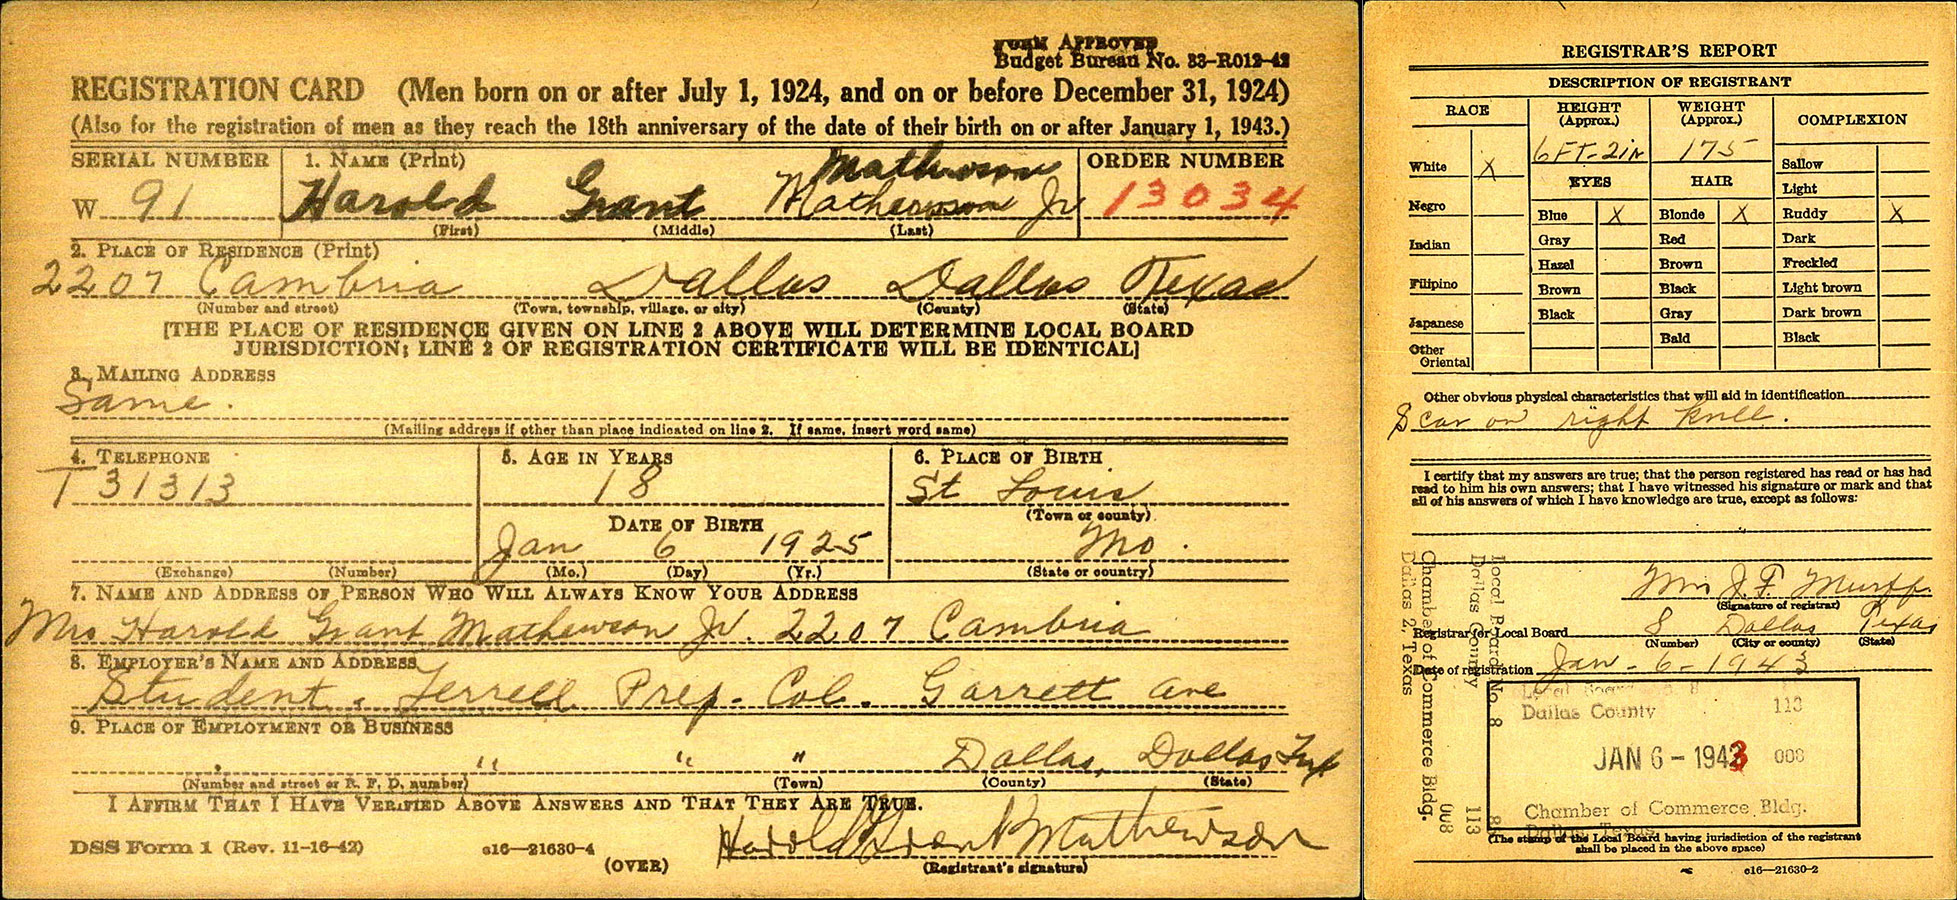 FORM APPROVED
Budget Bureau No. 33-R012-42
REGISTRATION CARD (Men born on or after July 1, 1924, and on or before December 31, 1924)
(Also for the registration of men as they reach the 18th anniversary of the date of their birth on or after January 1, 1943.)
SERIAL NUMBER 1. NAME (Print) ORDER NUMBER
Mathewson
W 91 Harold Grant Mathewson Jr 13034
(First) (Middle) (Last)
2. PLACE OF RESIDENCE (Print)
2207 Cambria Dallas Dallas Texas
(Number and street) (Town, township, village, or city) (County) (State)
[THE PLACE OF RESIDENCE GIVEN ON LINE 2 ABOVE WILL DETERMINE LOCAL BOARD
JURISDICTION; LINE 2 OF REGISTRATION CERTIFICATE WILL BE IDENTICAL]
3. MAILING ADDRESS
Same.
(Mailing address if other than place indicated on line 2. If same, insert word same)
4. TELEPHONE 5. AGE IN YEARS 6. PLACE OF BIRTH
T 31313 18 St Louis
(Town or county)
DATE OF BIRTH
Jan 6 1925 Mo.
(Exchange) (Number) (Mo.) (Day) (Yr.) (State or country)
7. NAME AND ADDRESS OF PERSON WHO WILL ALWAYS KNOW YOUR ADDRESS
Mrs Harold Grant Mathewson Jr. 2207 Cambria
8. EMPLOYER'S NAME AND ADDRESS
Student. Terrell Prep. Col. Garrett Ave
9. PLACE OF EMPLOYMENT OR BUSINESS
" " " Dallas, Dallas Tex
(Number and street or R. F. D. number) (Town) (County) (State)
I AFFIRM THAT I HAVE VERIFIED ABOVE ANSWERS AND THAT THEY ARE TRUE.
Harold Grant Mathewson
DSS Form 1 (Rev. 11-16-42) c16—21630-4 (OVER) (Registrant's signature)
REGISTRAR'S REPORT
DESCRIPTION OF REGISTRANT
RACE HEIGHT (Approx.) WEIGHT (Approx.) COMPLEXION
White X 6 FT-2 in 175 Sallow
EYES HAIR Light
Negro Blue X Blonde X Ruddy X
Indian Gray Red Dark
Hazel Brown Freckled
Filipino Brown Black Light brown
Japanese Black Gray Dark brown
Other Oriental Bald Black
Other obvious physical characteristics that will aid in identification
Scar on right knee.
I certify that my answers are true; that the person registered has read or has had
read to him his own answers; that I have witnessed his signature or mark and that
all of his answers of which I have knowledge are true, except as follows:
Mrs J. F.
(Signature of registrar)
Registrar for Local Board 8 Dallas Texas
(Number) (City or county) (State)
Date of registration Jan - 6 - 1943
Local Board No. 8 113
Dallas County 008
Chamber of Commerce Bldg.
Dallas 2, Texas
Local Board 8
Dallas County 113
JAN 6 - 1943 008
Chamber of Commerce Bldg.
Dallas, Texas
(The stamp of the Local Board having jurisdiction of the registrant
shall be placed in the above space)
c16—21630-2